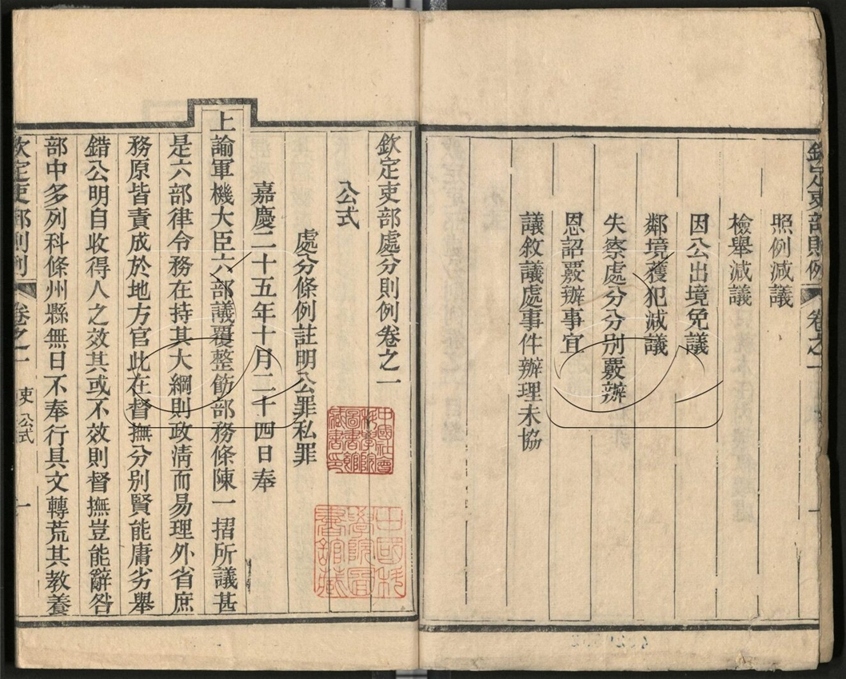 欽定吏部則例 卷之一
照例減議
檢舉減議
因公出境免議
鄰境獲犯減議
失察處分分別覈辦
恩詔覈辦事宜
議敘議處事件辦理未協
欽定吏部處分則例卷之一
公式
處分條例註明公罪私罪
嘉慶二十五年十月二十四日奉
上諭軍機大臣六部議覆整飭部務條陳一摺所議甚
是六部律令務在持其大綱則政淸而易理外省庶
務原皆責成於地方官此在督撫分別賢能庸劣舉
錯公明自收得人之效其或不效則督撫豈能辭咎
部中多列科條州縣無日不奉行具文轉荒其敎養
欽定吏部則例 卷之一 吏 公式 一